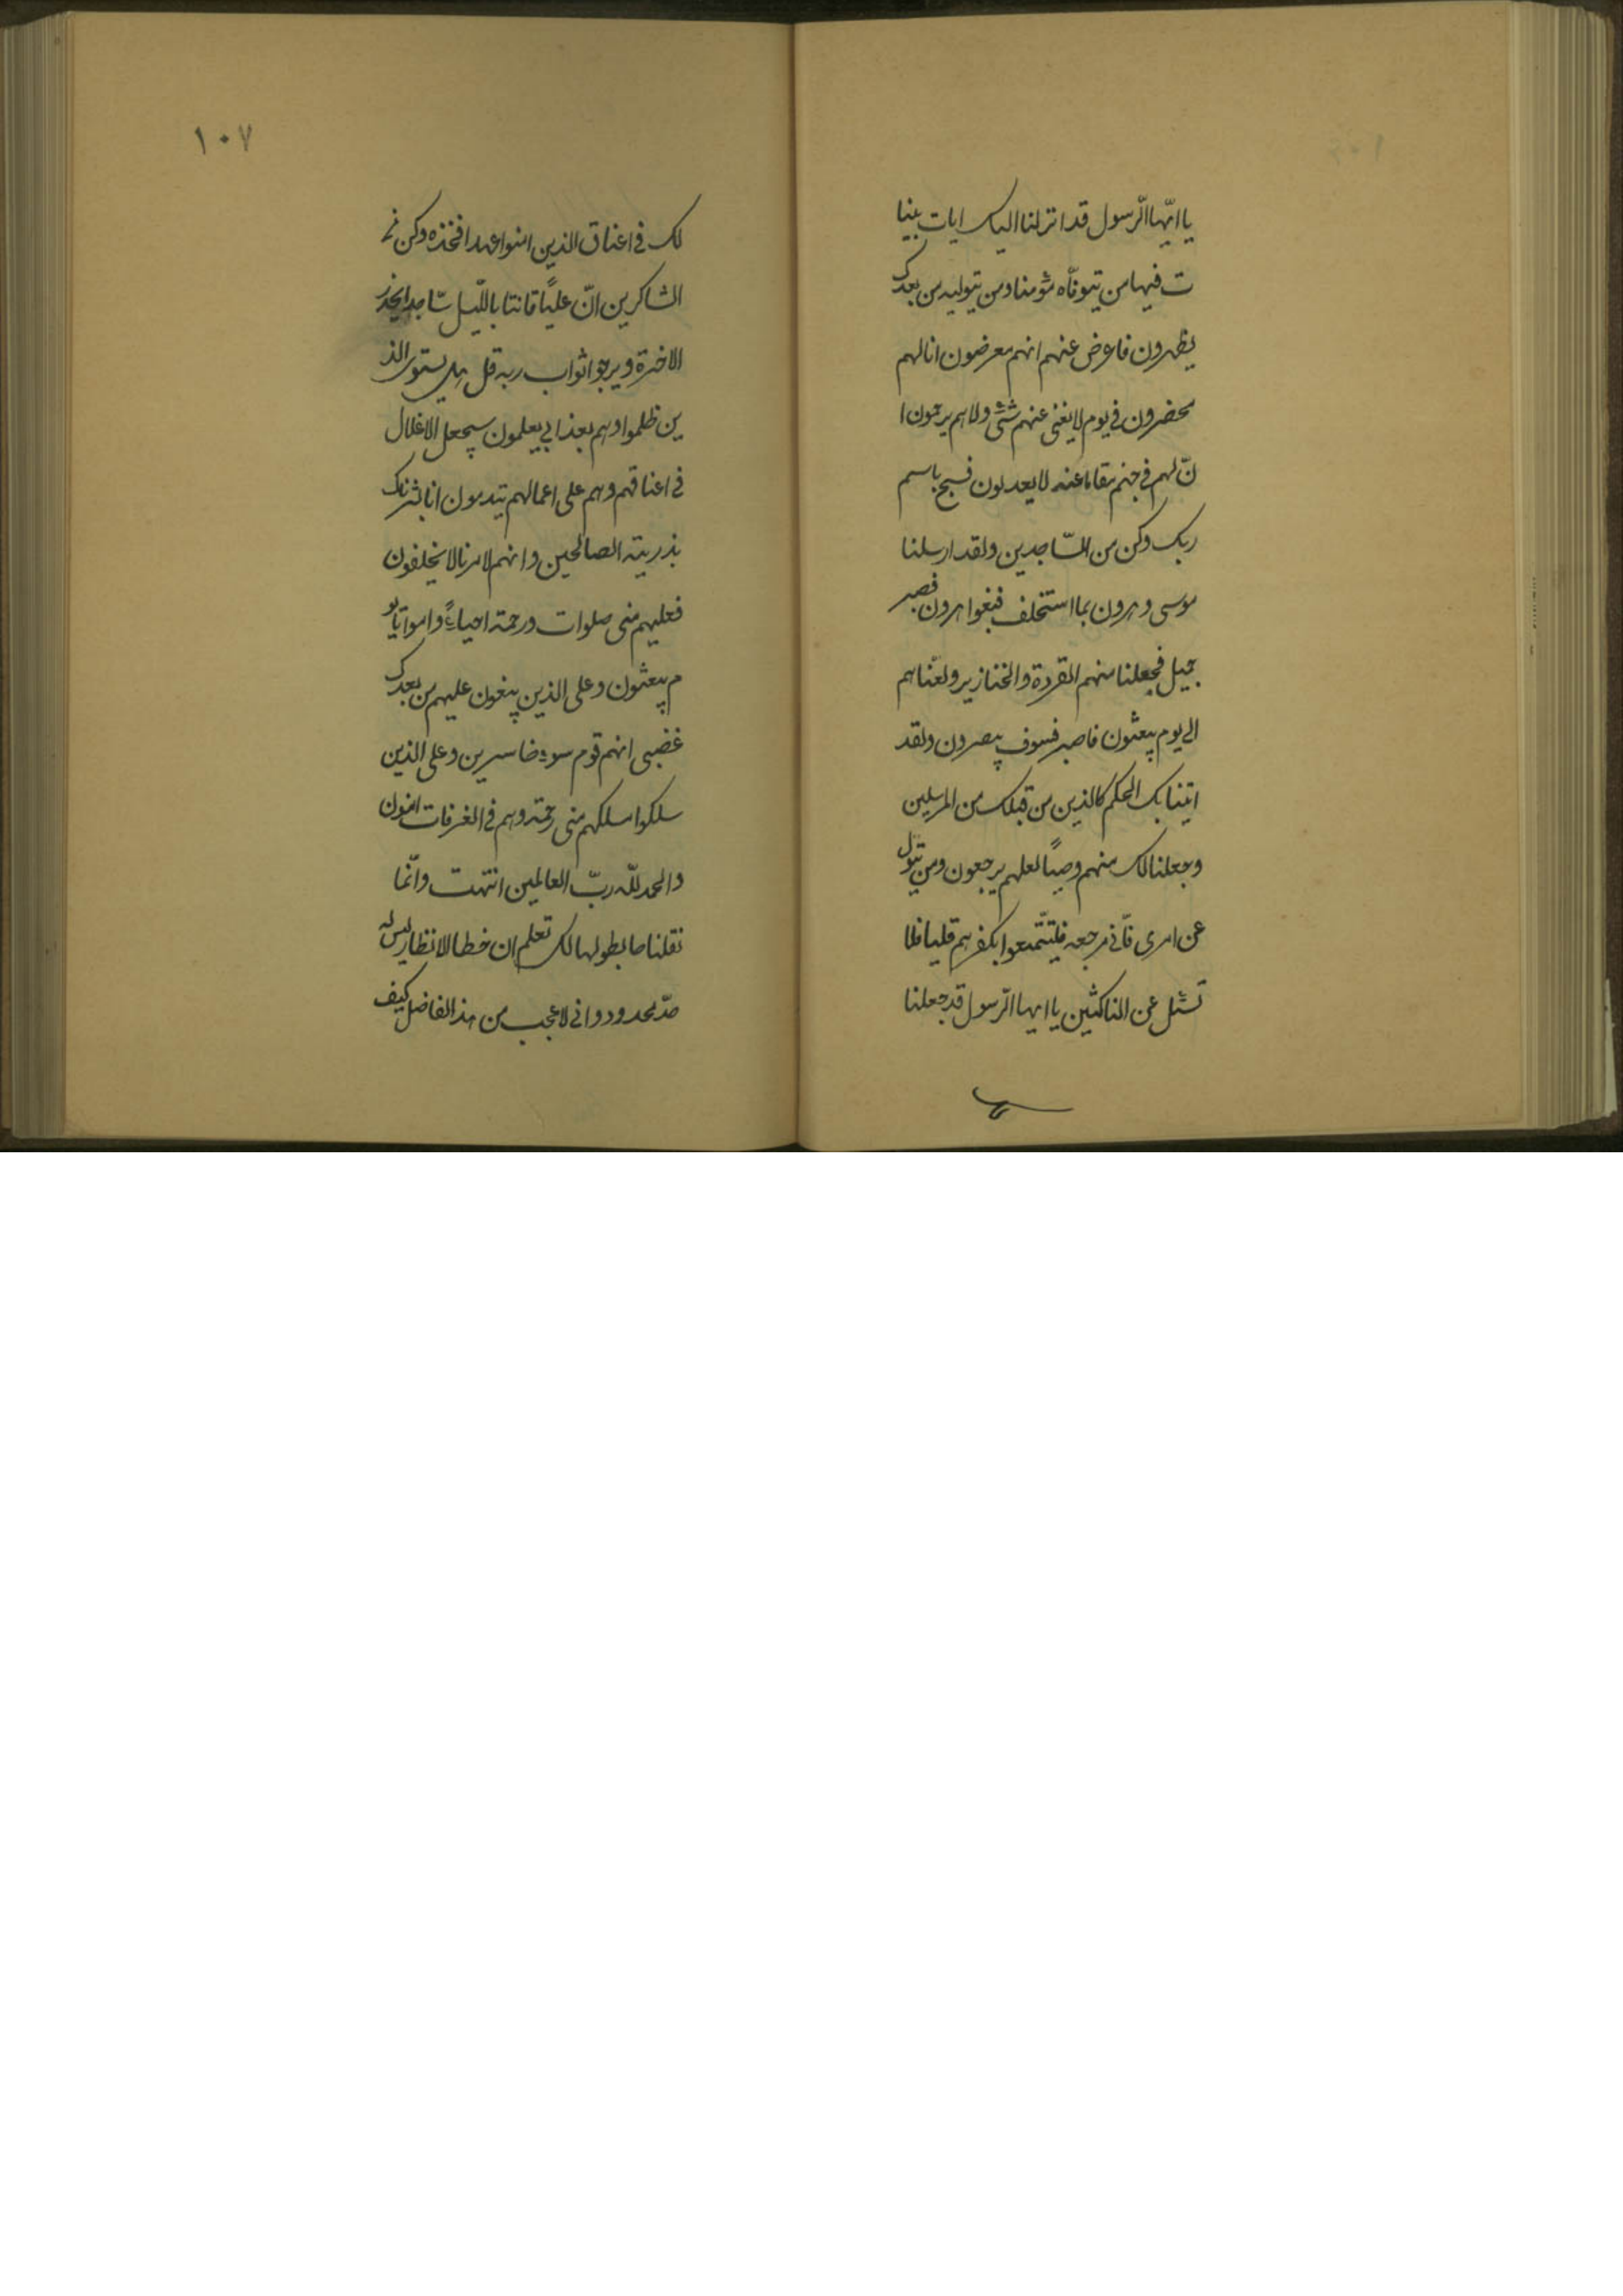 يا ايّها الرّسول قد انزلنا اليك ايات بينا
ت فيها من يتوفّاه مؤمنا ومن يتوليه من بعدك
يظهرون فاعرض عنهم انهم معرضون انا لهم
محضرون في يوم لا يغنى عنهم شئ ولا هم يرحمون ا
نّ لهم في جهنم مقاما عنه لا يعدلون فسبح باسم
ربك وكن من السّاجدين ولقد ارسلنا
موسى وهرون بما استخلف فبغوا هرون فصبر
جميل فجعلنا منهم القردة والخنازير ولعنّاهم
الى يوم يبعثون فاصبر فسوف يبصرون ولقد
اتينا بك الحكم كالذين من قبلك من المرسلين
وجعلنا لك منهم وصيّاً لعلهم يرجعون ومن يتول
عن امرى فانّى مرجعه فليتمتّعوا بكفرهم قليلا فلا
تسئل عن الناكثين يا ايها الرّسول قد جعلنا
١٠٧
لك في اعناق الذين امنوا عهدا فخذه وكن من
الشاكرين انّ عليّاً قانتا باللّيل سّاجدا يحذر
الاخرة ويرجو اثواب ربه قل هل يستوى الذ
ين ظلموا وهم بعذابي يعلمون سيجعل الاغلال
في اعناقهم وهم على اعمالهم يندمون انا بشرناك
بذريته الصالحين وانهم لامرنا لا يخلفون
فعليهم منى صلوات ورحمة احياءً وامواتا يو
م يبعثون وعلى الذين يبغون عليهم من بعدك
غضبى انهم قوم سوء خاسرين وعلى الذين
سلكوا مسلكهم منى رحمة وهم في الغرفات امنون
والحمد للّه ربّ العالمين انتهت وانّما
نقلناها بطولها لك تعلم ان خطا الانظار ليس له
حدّ محدود وانى لاعجب من هذا الفاضل كيف